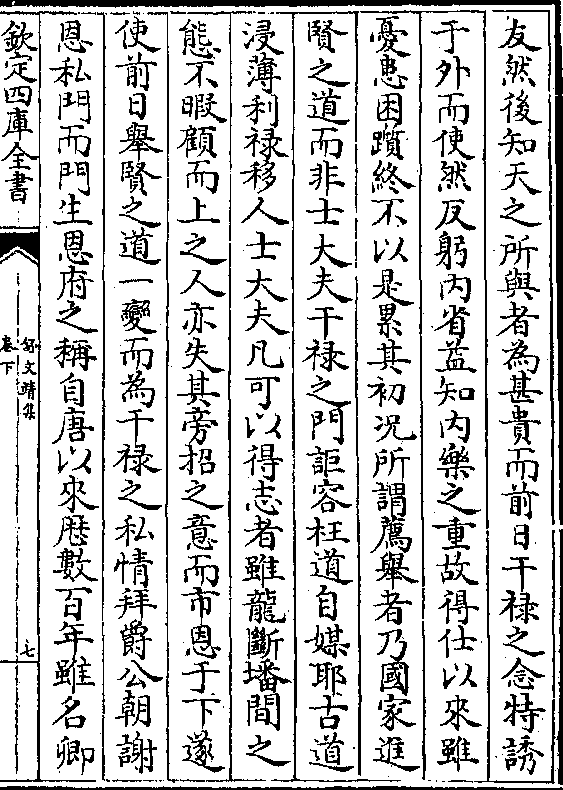 友然後知天之所與者為甚貴而前日干禄之念特誘
于外而使然反躬内省益知内樂之重故得仕以來雖
憂患困躓終不以是累其初況所謂薦舉者乃國家進
賢之道而非士大夫干禄之門詎容枉道自媒耶古道
浸薄利禄移人士大夫凡可以得志者雖龍斷墦間之
態不暇顧而上之人亦失其旁招之意而市恩于下遂
使前日舉賢之道一變而為干禄之私情拜爵公朝謝
恩私門而門生恩府之稱自唐以來歴數百年雖名卿
欽定四庫全書
舒文靖集
卷下
七